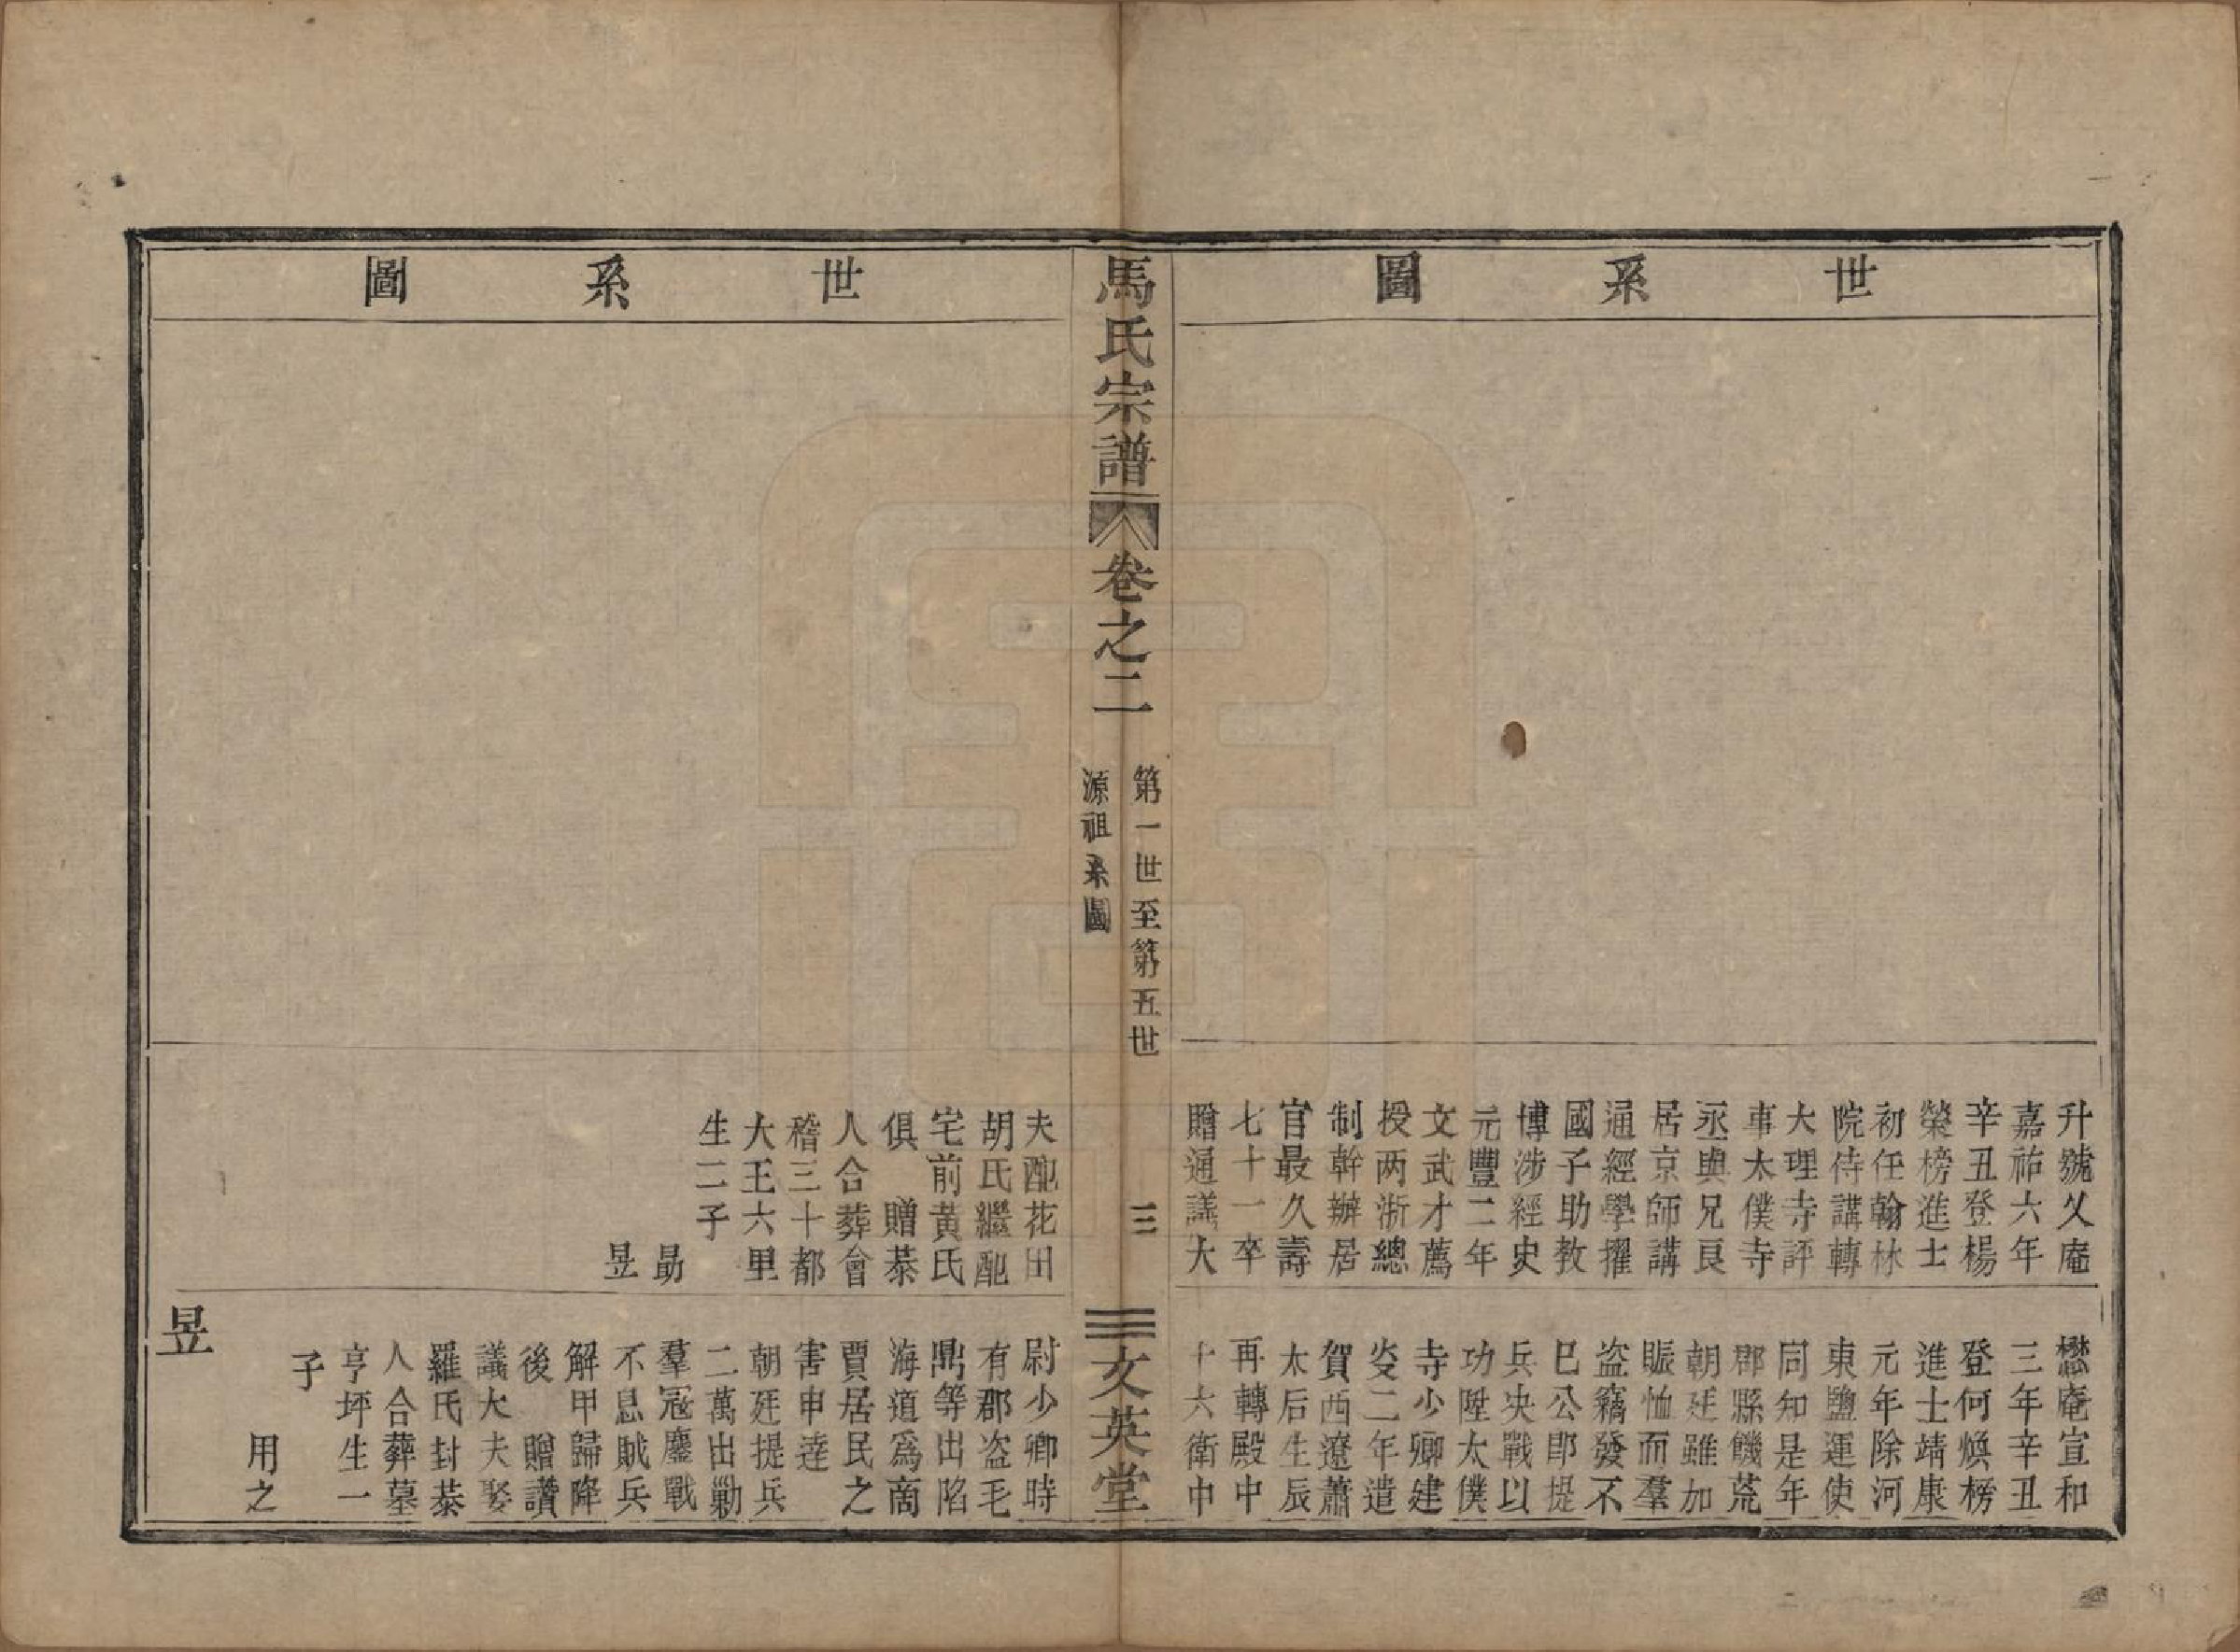 世系圖
升號父庵
嘉祐六年
辛丑登楊
榮榜進士
初任翰林
院侍講轉
大理寺評
事太僕寺
丞與兄良
居京師講
通經學擢
國子助教
博涉經史
元豐二年
文武才薦
授两浙總
制幹辦居
官最久壽
七十一卒
贈通議大
懋庵宣和
三年辛丑
登何煥榜
進士靖康
元年除河
東鹽運使
同知是年
郡縣饑荒
朝廷雖加
賑恤而羣
盗竊發不
巳公即提
兵决戰以
功陞太僕
寺少卿建
炎二年遣
賀西遼蕭
太后生辰
再轉殿中
十六衛中
馬氏宗譜
卷之二
第一世至第五世
源祖系圖
三
文英堂
世系圖
夫配花田
胡氏繼配
宅前黄氏
俱 贈恭
人合葬會
稽三十都
大王六里
生二子
勗
昱
尉少卿時
有郡盗毛
鼎等出陷
海道爲商
賈居民之
害申達
朝廷提兵
二萬出勦
羣冦鏖戰
不息賊兵
解甲歸降
後 贈讚
議大夫娶
羅氏封恭
人合葬墓
亨坪生一
子
用之
昱